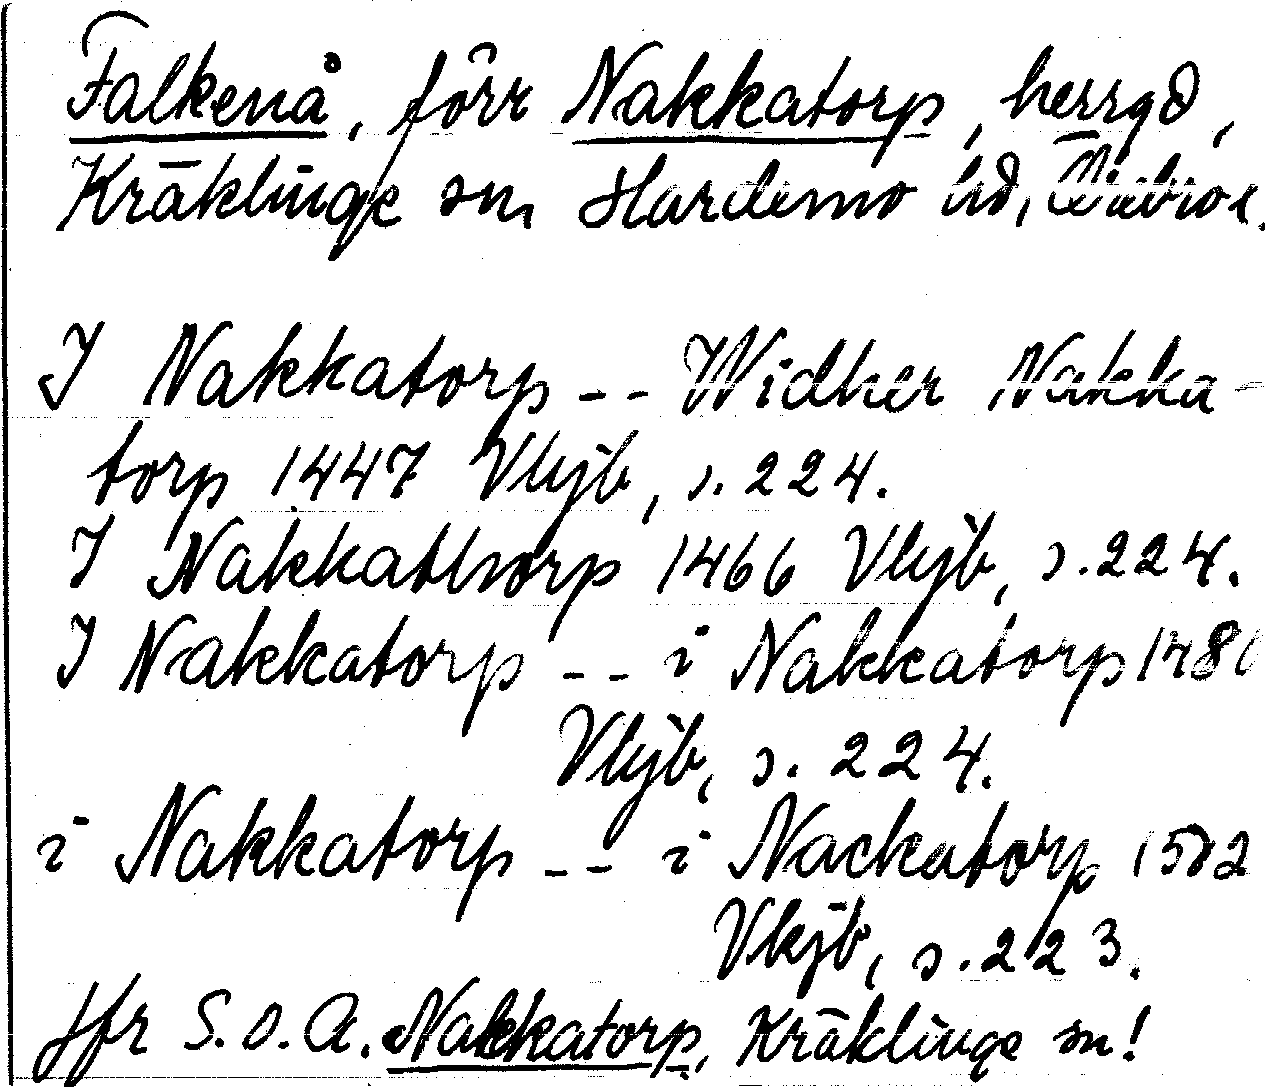 Falkenå, förr Nakkatorp, herrgd,
Kräklinge sn Hardemo hd, Örebro l.
I Nakkatorp -- Widher Nakka-
torp 1447 Vkjb, s. 224.
I Nakkathorp 1466 Vkjb, s. 224.
I Nakkatorp -- i Nakkatorp
Vkjb, s. 224.
i Nakkatorp -- i Nackatorp 1502
Vkjb, s. 223.
Jfr S.O.A. Nakkatorp, Kräklinge sn!